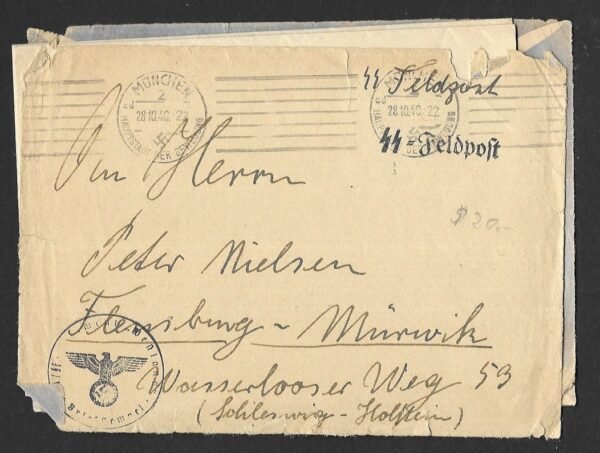 MÜNCHEN
2
28.10.40.-22
HAUPTSTADT DER BEWEGUNG
ϟϟ Feldpost
28.10.40.-22
ϟϟ=Feldpost
An Herrn
$ 20.-
Peter Nielsen
Flensburg - Mürwik
Wasserlooser Weg 53
(Schleswig - Holstein)
Briefstempel